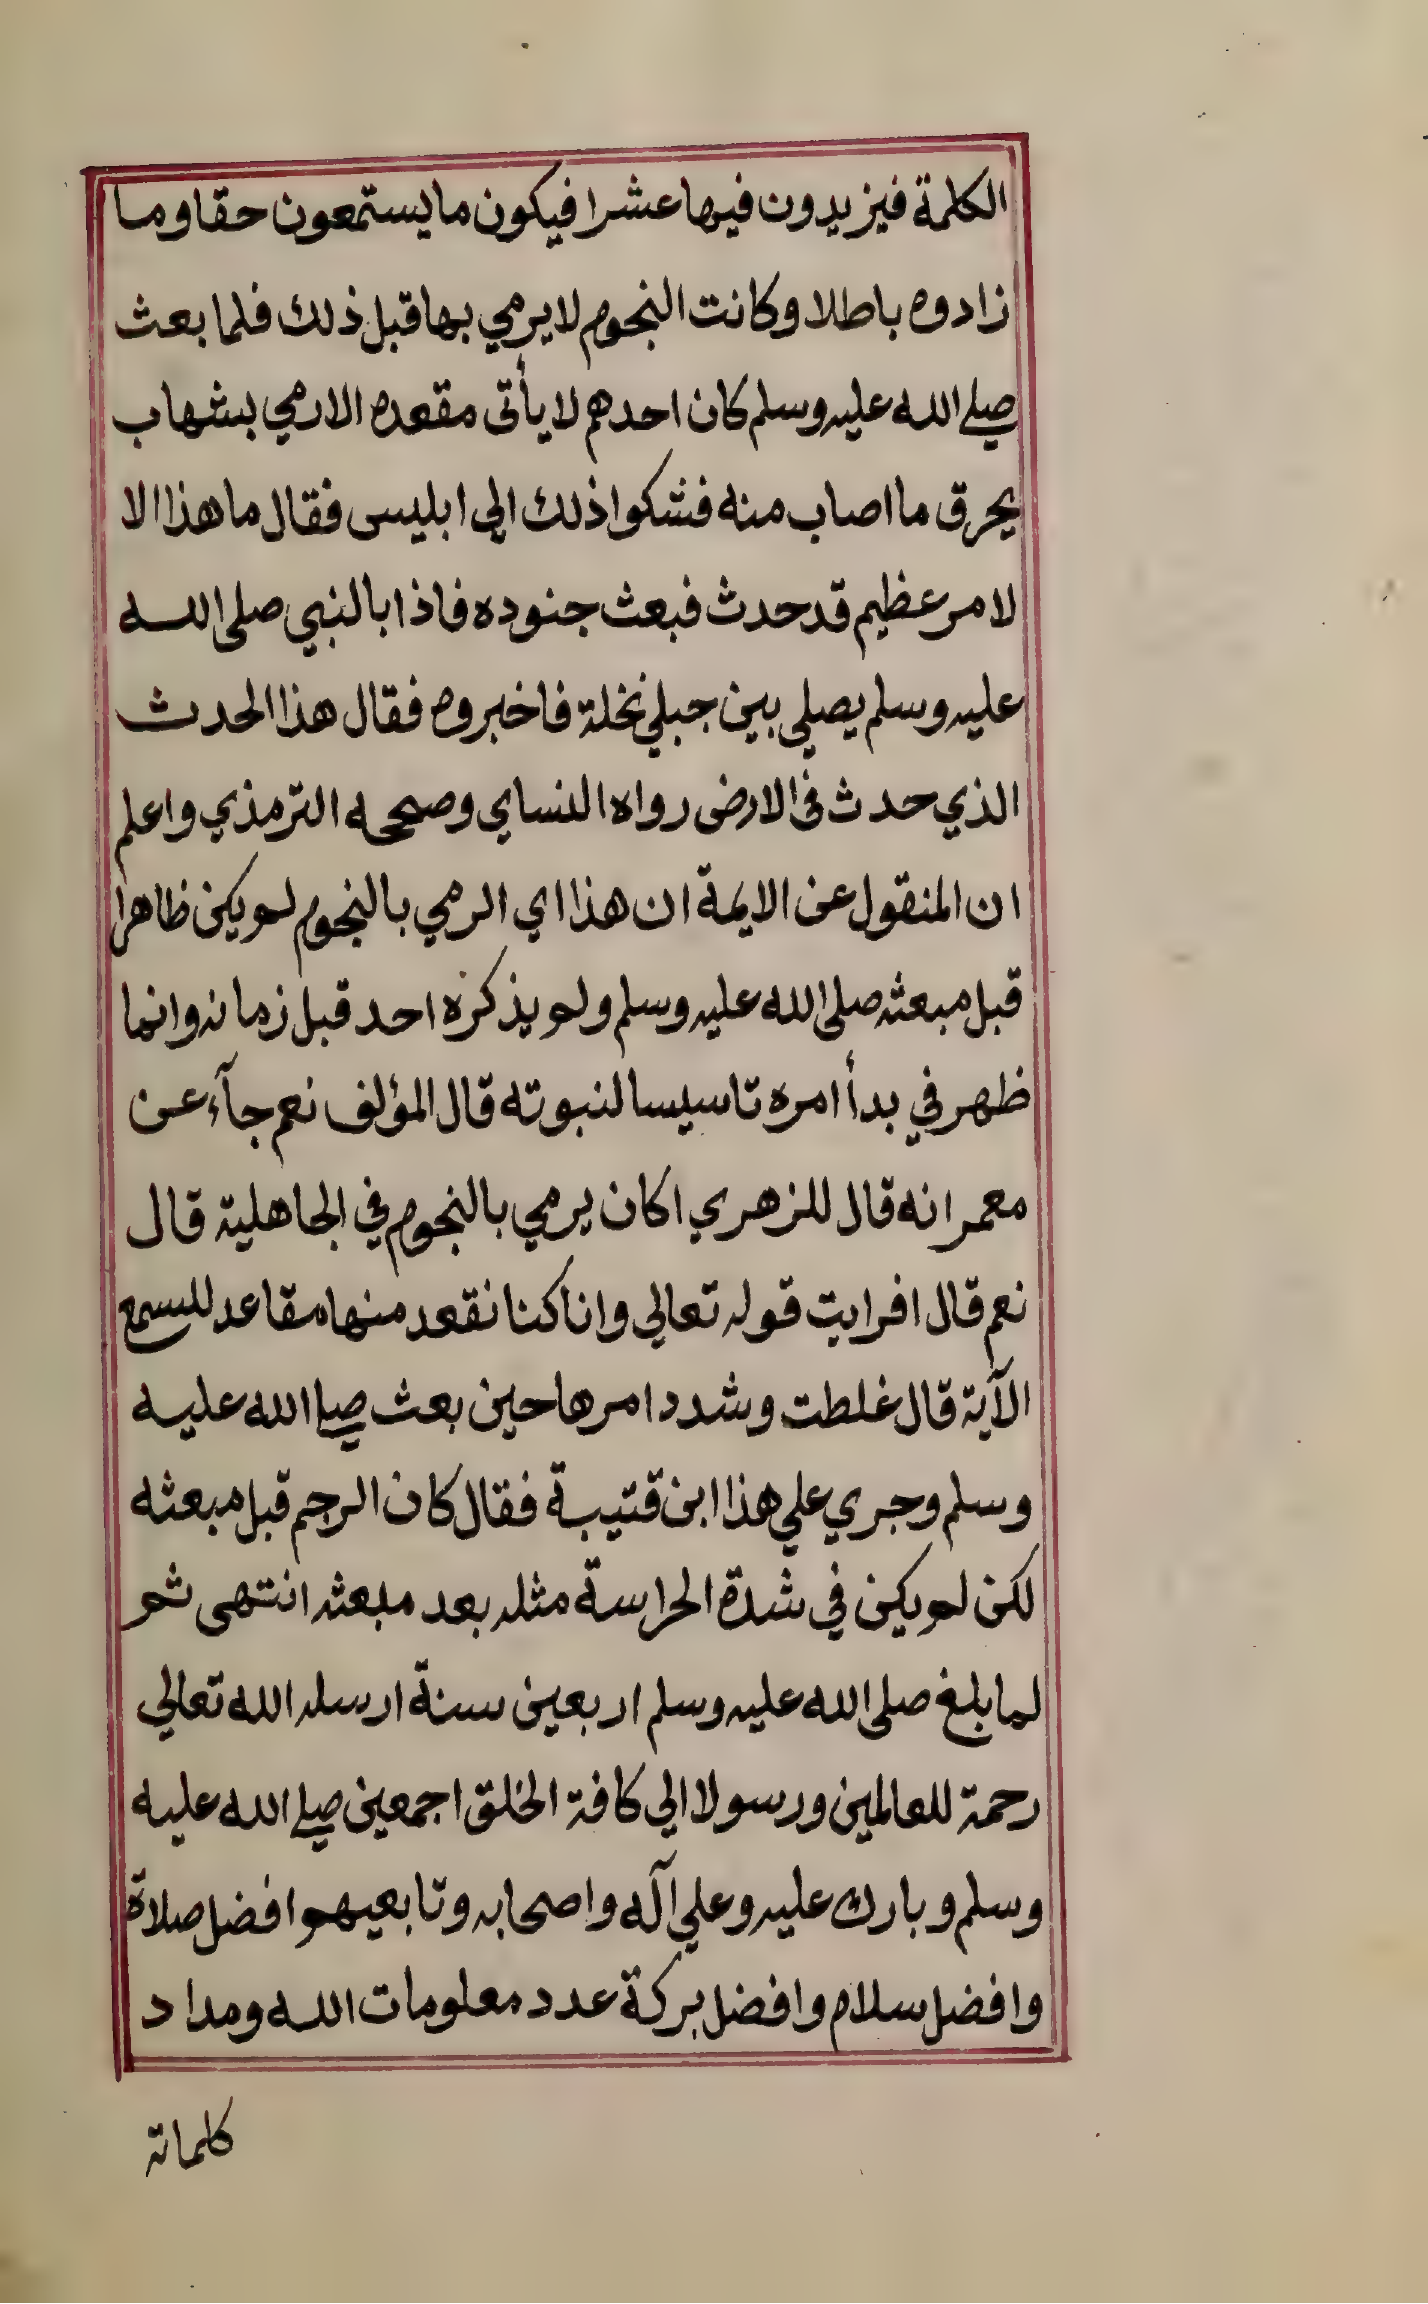 الكلمة فيزيدون فيها عشرا فيكون ما يستمعون حقا وما
زادوه باطلا وكانت النجوم لا يرمي بها قبل ذلك فلما بعث
صلي الله عليه وسلم كان احدهم لا يأتى مقعده الا رمي بشهاب
يحرق ما اصاب منه فشكوا ذلك الي ابليس فقال ما هذا الا
لامر عظيم قد حدث فبعث جنوده فاذا بالنبي صلى الله
عليه وسلم يصلي بين جبلي نخلة فاخبروه فقال هذا الحدث
الذي حدث في الارض رواه النساي وصححه الترمذي واعلم
ان المنقول عن الايمة ان هذا اي الرمي بالنجوم لم يكن ظاهرا
قبل مبعثه صلى الله عليه وسلم ولم يذكره احد قبل زمانه وانما
ظهر في بدأ امره تاسيسا لنبوته قال المؤلف نعم جآء عن
معمر انه قال للزهري اكان يرمي بالنجوم في الجاهلية قال
نعم قال افرايت قوله تعالي وانا كنا نقعد منها مقاعد للسمع
الآية قال غلظت وشدد امرها حين بعث صلي الله عليه
وسلم وجري علي هذا ابن قتيبة فقال كان الرجم قبل مبعثه
لكن لم يكن في شدة الحراسة مثله بعد مبعثه انتهى ثم
لما بلغ صلى الله عليه وسلم اربعين سنة ارسله الله تعالي
رحمة للعالمين ورسولا الي كافة الخلق اجمعين صلي الله عليه
وسلم وبارك عليه وعلي آله واصحابه وتابعيهم افضل صلاة
وافضل سلام وافضل بركة عدد معلومات الله ومداد
كلماته